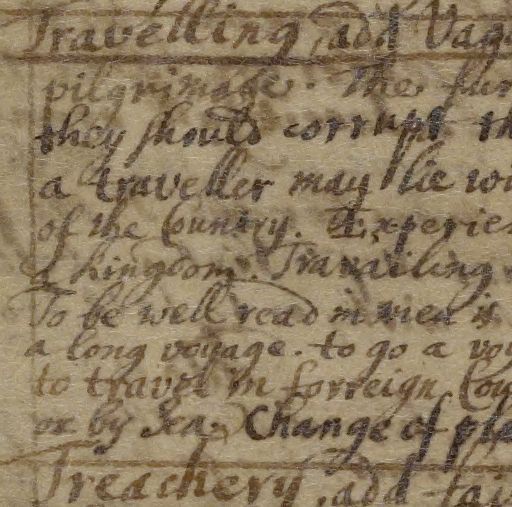 Travelling, add Vag
pilgrimage. The fur
they should corrupt th
a traveller may lie wi
of the Country. Experien
a kingdom. Travailing
To be well read in men is
a long voyage. to go a voy
to travel in forreign Cou
or by sea. Change of pla
Treachery, add fai